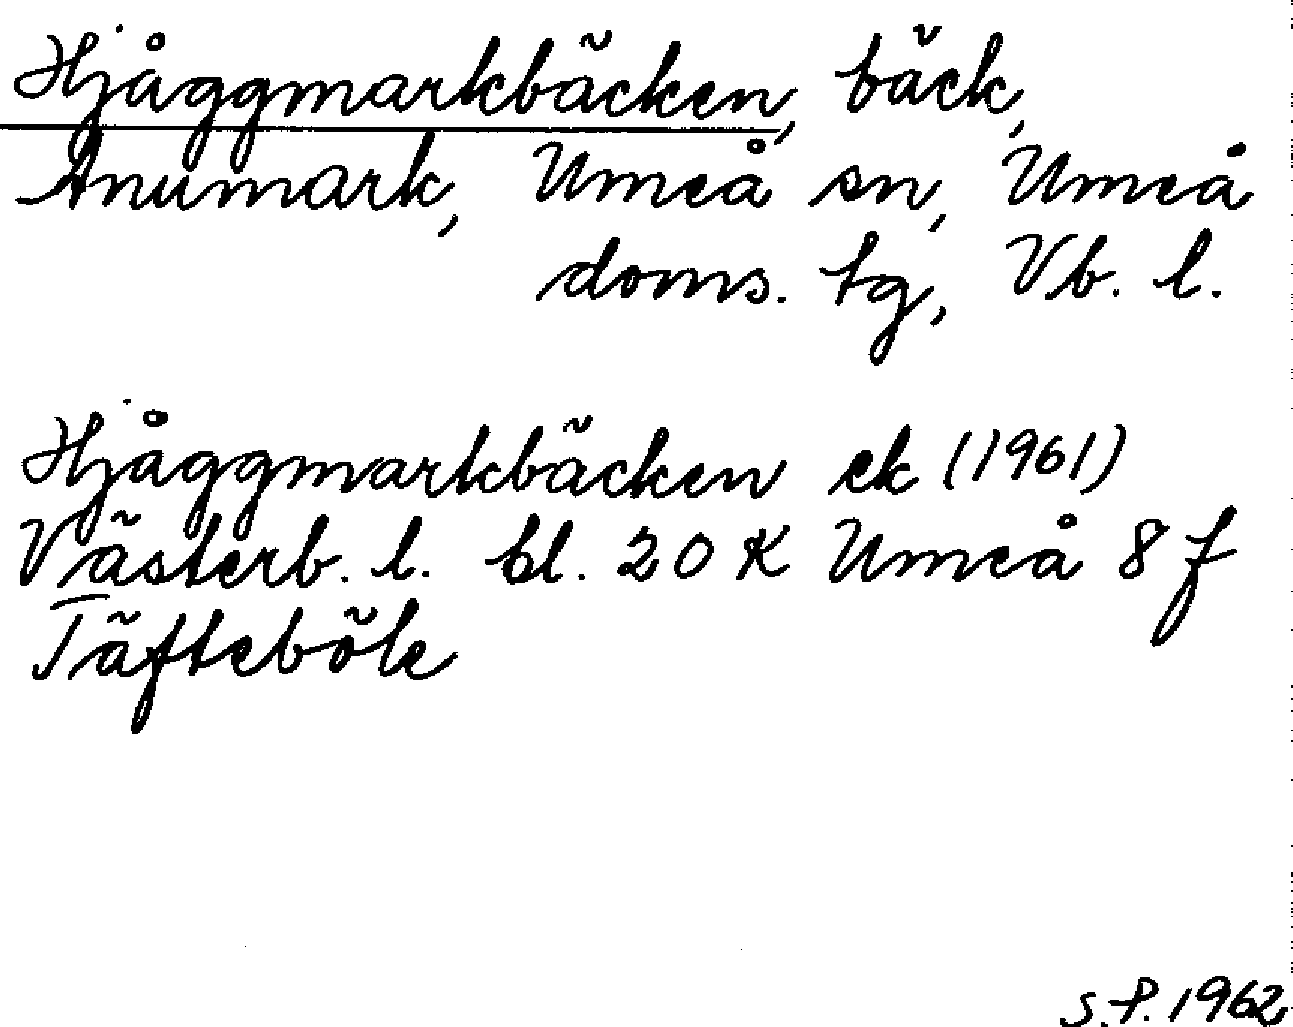 Hjåggmarkbäcken, bäck,
Anumark, Umeå sn, Umeå
doms. tg, Vb. l.
Hjåggmarkbäcken ek (1961)
Västerb. l. bl. 20 K Umeå 8 f
Täfteböle
S.P. 1962